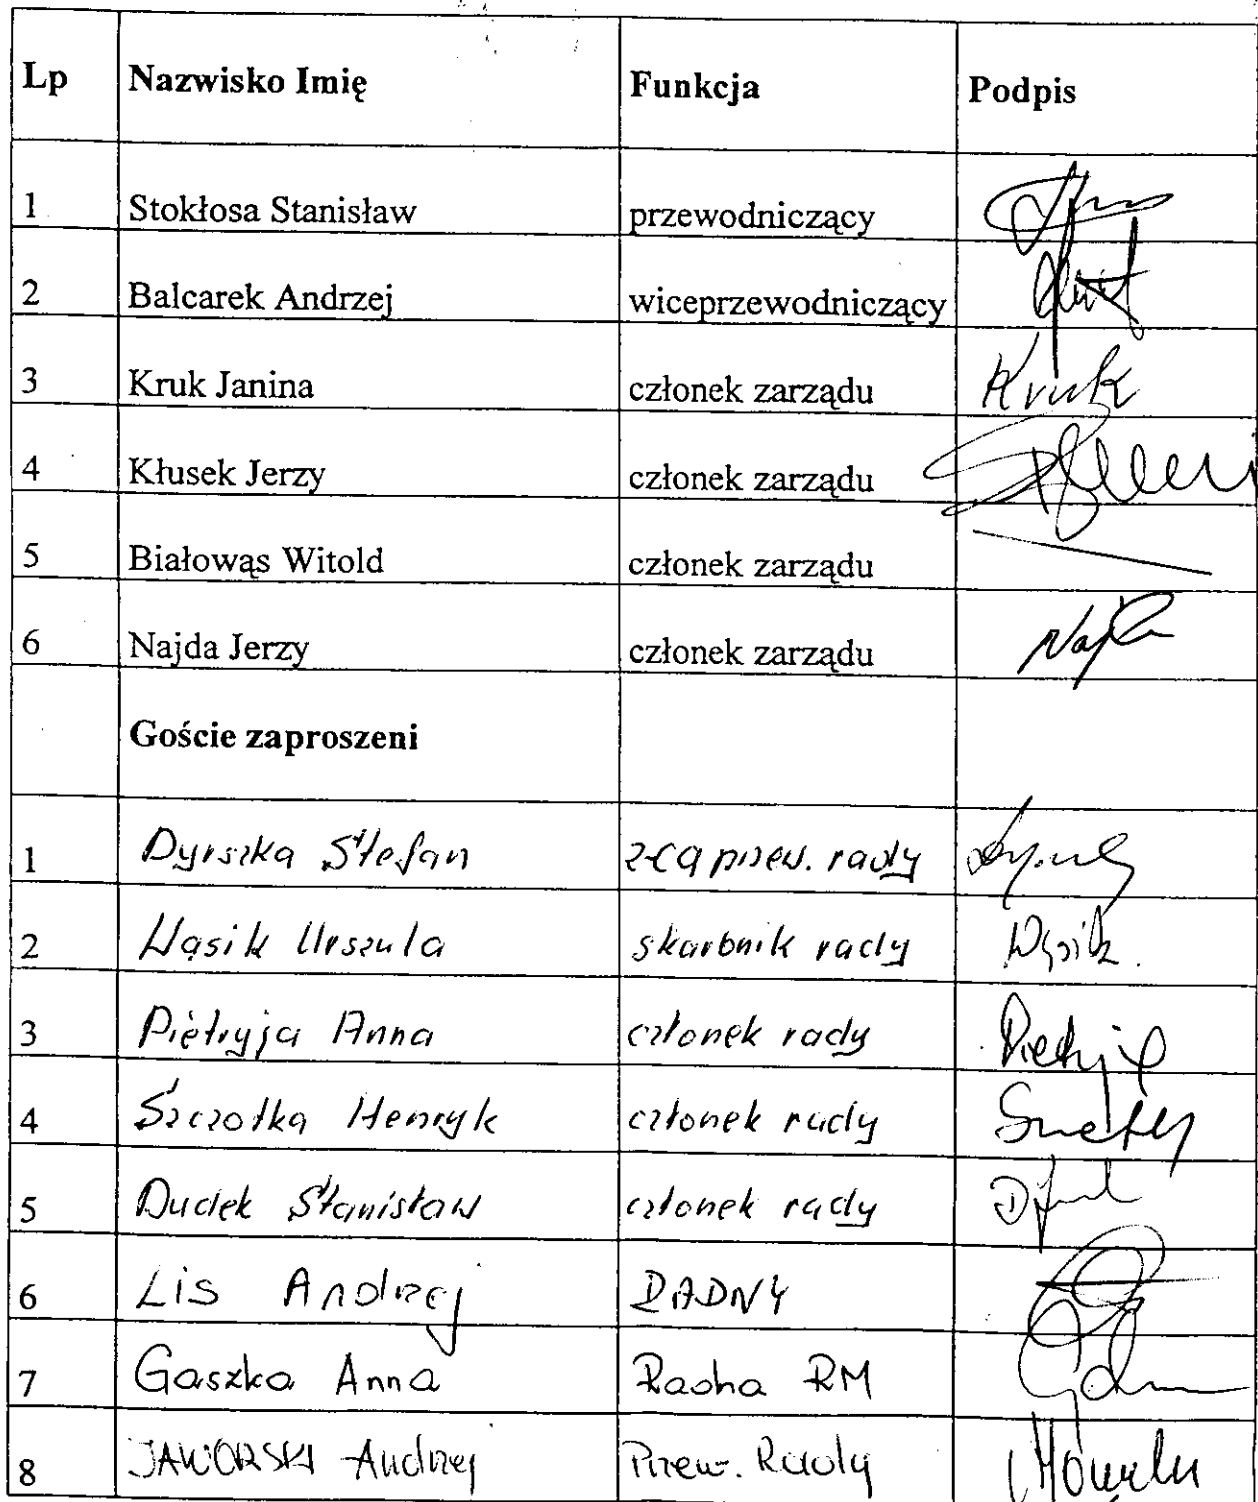 Lp Nazwisko Imię Funkcja Podpis
1 Stokłosa Stanisław przewodniczący
2 Balcarek Andrzej wiceprzewodniczący
3 Kruk Janina członek zarządu Kruk
4 Kłusek Jerzy członek zarządu
5 Białowąs Witold członek zarządu
6 Najda Jerzy członek zarządu
Goście zaproszeni
1 Dyrszka Stefan z-ca przew. rady
2 Wąsik Urszula skarbnik rady Wąsik
3 Pietryja Anna członek rady
4 Szczotka Henryk członek rady
5 Dudek Stanisław członek rady
6 Lis Andrzej RADNY
7 Gaszka Anna Radna RM
8 JAWORSKI Andrzej Przew. Rady